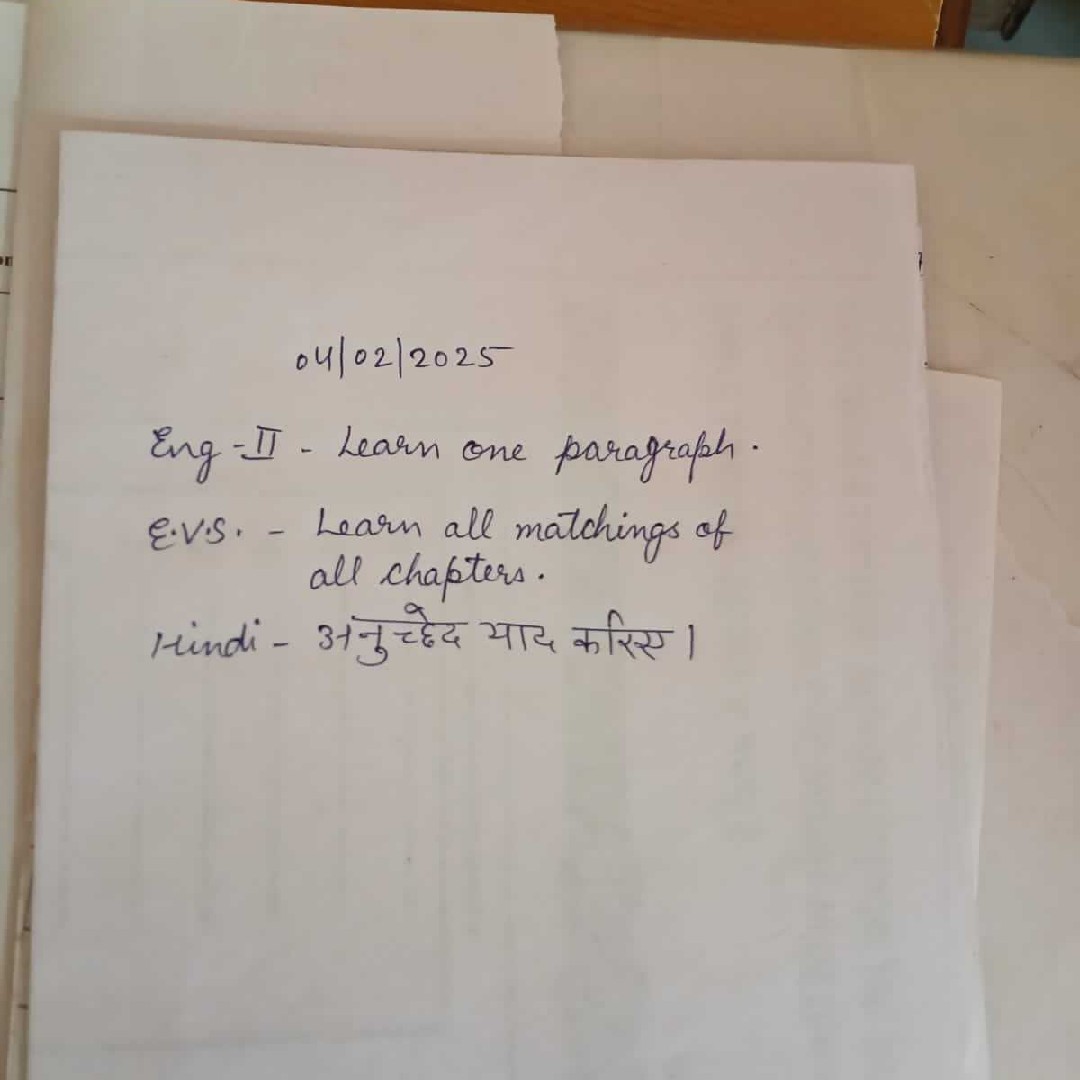 04/02/2025
Eng-II - Learn one paragraph.
E.V.S. - Learn all matchings of
all chapters.
Hindi - अनुच्छेद याद करिए।